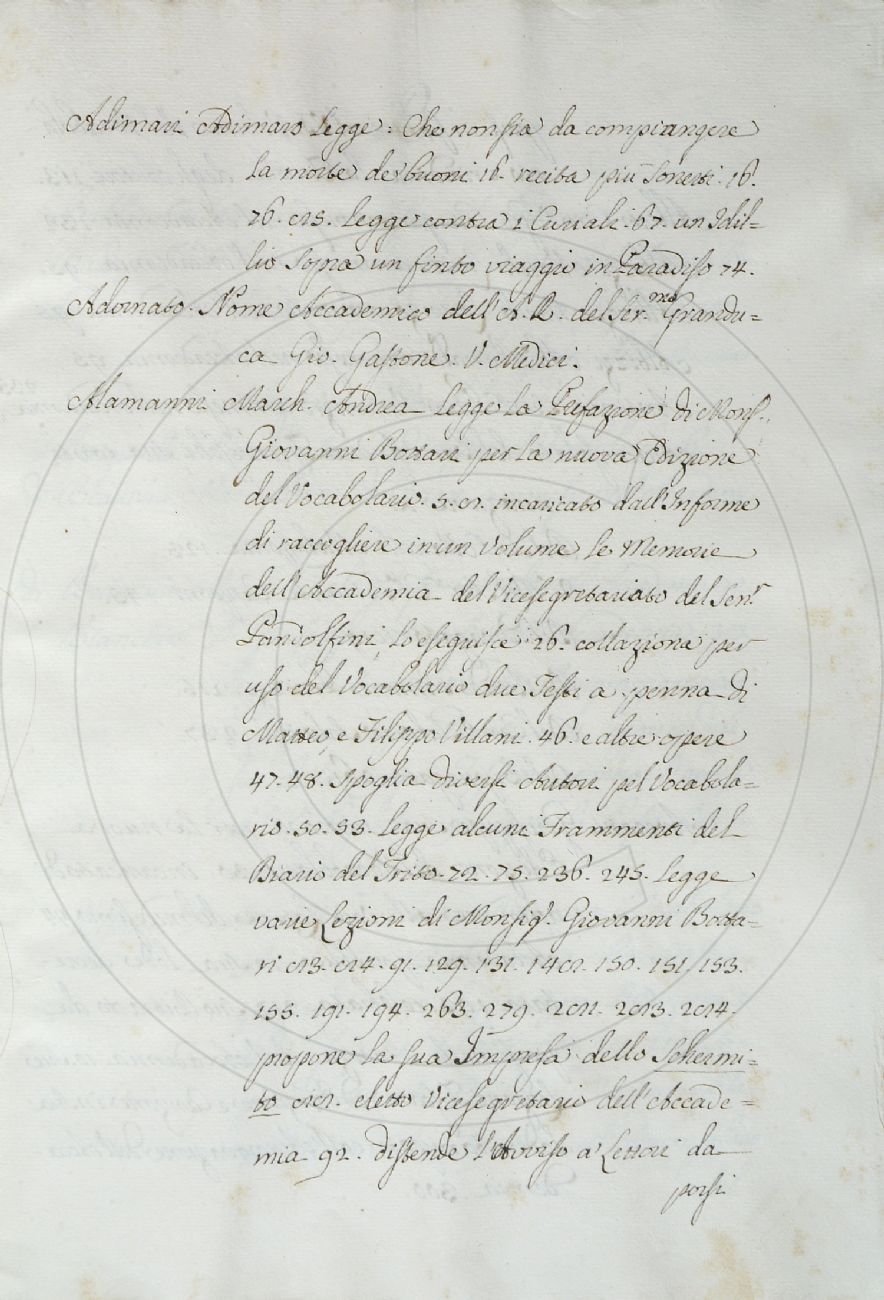 Adimari Adimaro legge: Che non sia da compiangere
la morte de' buoni 16. recita più Sonetti. 16.
76. 85. legge contra i Curiali. 67. un Idil=
lio sopra un finto viaggio in Paradiso 74.
Adornato. Nome Accademico dell'A. R. del Ser.mo Grandu=
ca Gio. Gastone. V. Medici.
Alamanni March. Andrea legge la Prefazione di Mons.
Giovanni Bottari per la nuova Edizione
del Vocabolario. 5. 8. incaricato dall'Informe
di raccogliere in un Volume le Memorie
dell'Accademia del Vicesegretariato del Sen.r
Pandolfini, lo eseguisce 26. collaziona per
uso del Vocabolario due Testi a penna di
Matteo, e Filippo Villani. 46. e altre opere
47. 48. spoglia diversi Autori pel Vocabola=
rio. 50. 53. legge alcuni Frammenti del
Diario del Trito. 72. 75. 236. 245. legge
varie Lezioni di Monsig.r Giovanni Botta=
ri 83. 84. 91. 129. 131. 148. 150. 151. 153.
155. 191. 194. 263. 279. 281. 283. 284.
propone la sua Impresa dello Schermi=
to 88. eletto Vicesegretario dell'Accade=
mia 92. distende l'Avviso a' Lettori da
porsi